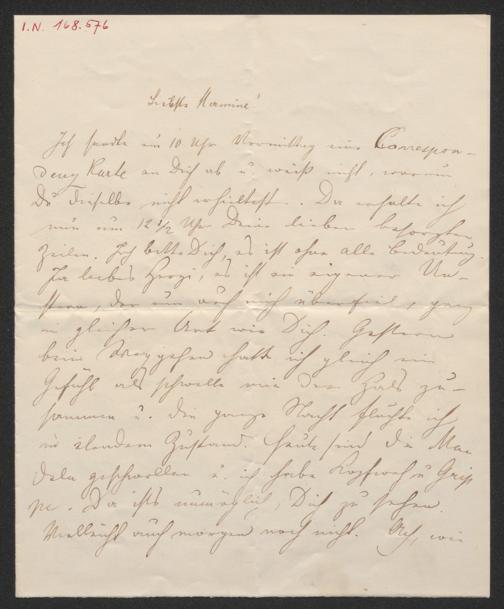 I.N. 168.576
Liebste Hermine!
Ich sandte um 10 Uhr Vormittag eine Correspon-
denz Karte an Dich ab u. weiß nicht, warum
Du dieselbe nicht erhieltest. Da erhalte ich
nun um 12 1/2 Uhr Deine lieben besorgten
Zeilen. Ich bitte Dich, es ist ohne alle Bedeutung.
Ja liebes Herzi, es ist ein eigener Un-
stern, der nun auch mich überfiel, ganz
in gleicher Art wie Dich. Gestern
beim Weggehen hatte ich gleich ein
Gefühl als schwelle mir der Hals zu-
sammen u. die ganze Nacht ich
in elendem Zustand. Heute sind die Man-
deln geschwollen u. ich habe Kopfweh u Grip
pe. Da ists unmöglich, Dich zu sehen.
Vielleicht auch morgen noch nicht. Ach, wie